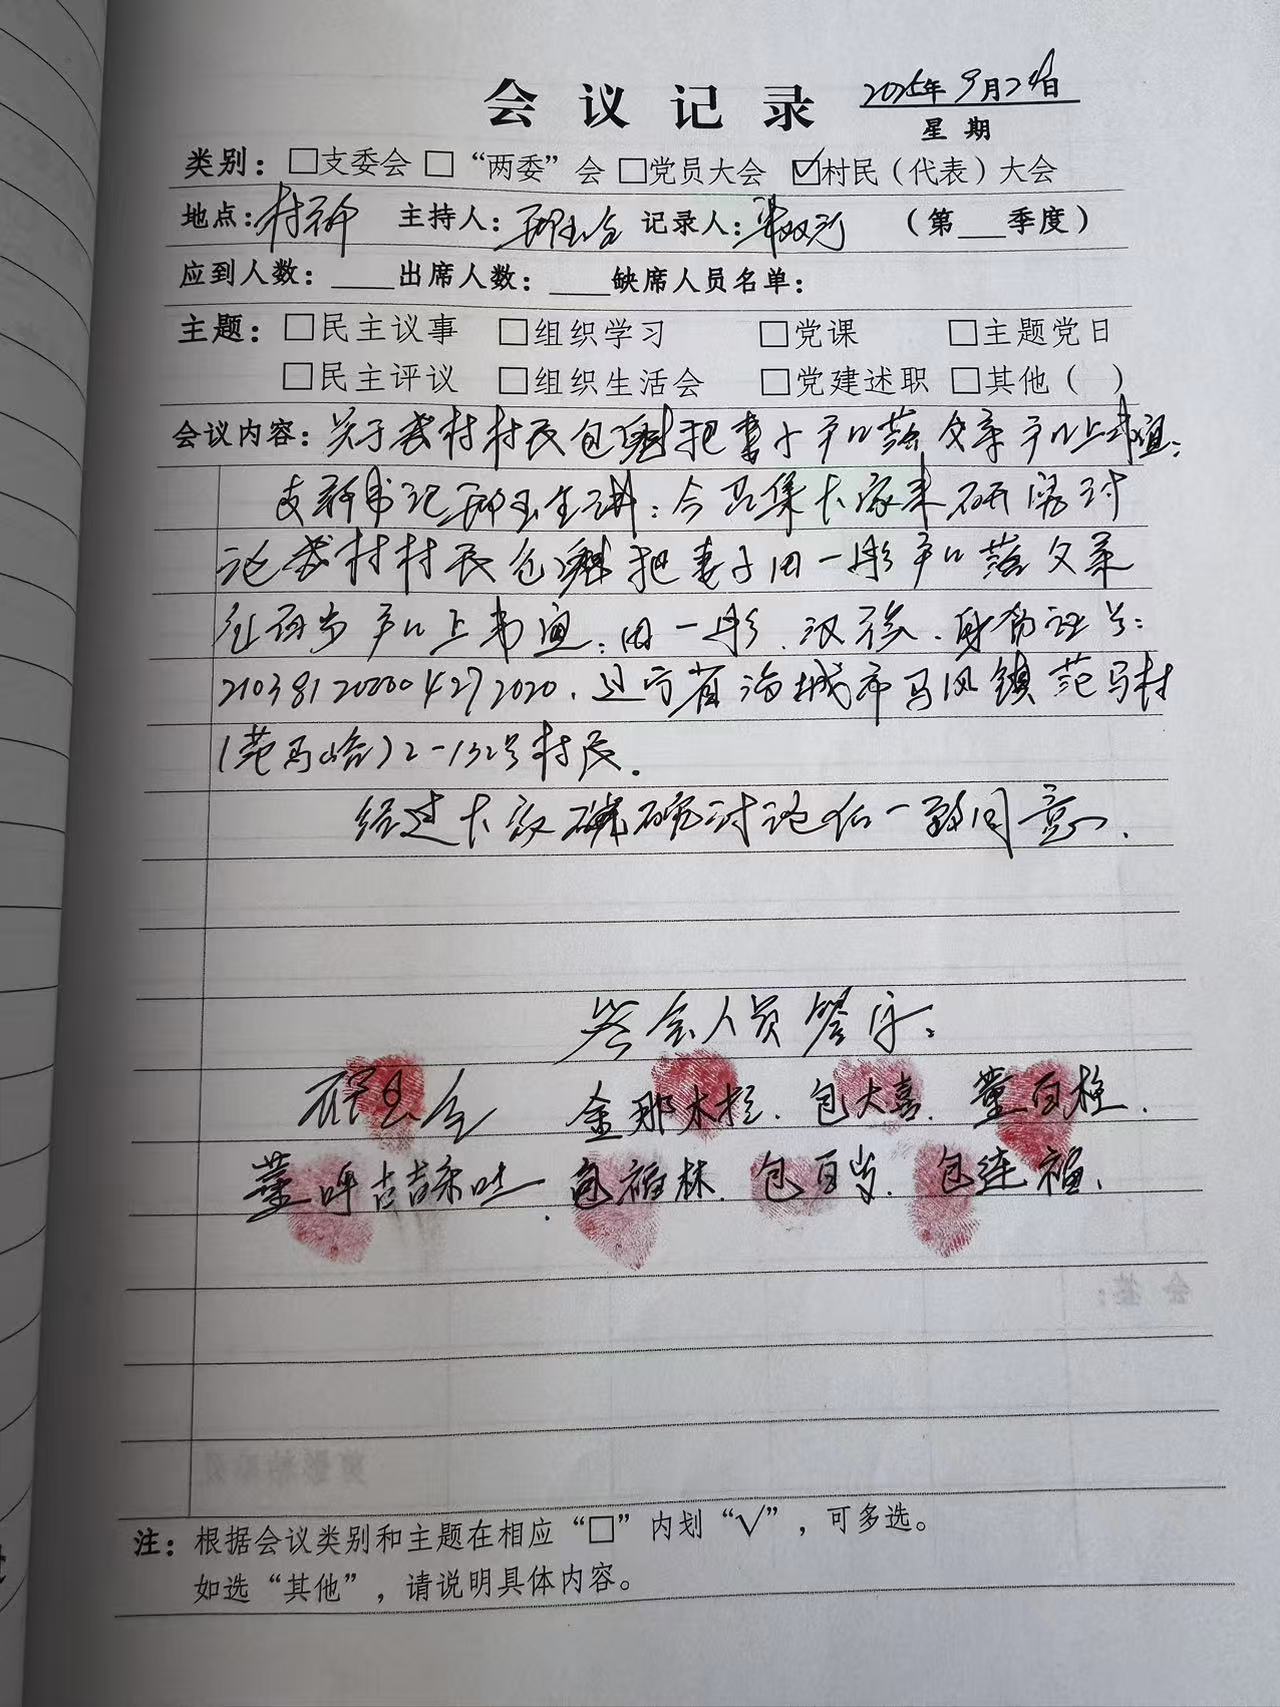 会议记录 2025年9月29日
星期
类别：□支委会 □“两委”会 □党员大会 ☑村民（代表）大会
地点：村部 主持人： 记录人： （第___季度）
应到人数：____出席人数：____缺席人员名单：
主题：□民主议事 □组织学习 □党课 □主题党日
□民主评议 □组织生活会 □党建述职 □其他（ ）
会议内容：关于我村村民包 把妻子户口落 户口上事宜：
支部书记 讲：今召集大家来研究讨
论我村村民包 把妻子田一彤户口落
户口上事宜：田一彤，汉族，身份证号：
210381200004272020，辽宁省海城市马风镇范马村
（范马峪）2-132号村民。
经过大家研究讨论后一致同意。
参会人员签字：
金那木拉．包大喜．董百柱．
董呼吉 吐 包福林．包百岁．包连福．
会签：
注：根据会议类别和主题在相应“□”内划“√”，可多选。
如选“其他”，请说明具体内容。